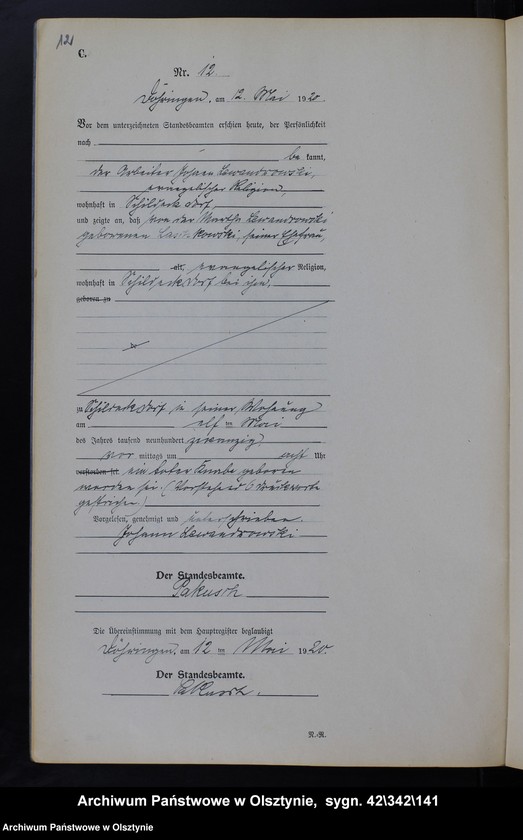 121
C.
Nr. 12
Döhringen, am 12. Mai 1920.
Vor dem unterzeichneten Standesbeamten erschien heute, der Persönlichkeit
nach
be kannt,
der Arbeiter Johann Lewandrowski,
evangelischer Religion,
wohnhaft in Schildeck Dorf,
und zeigte an, daß von der Martha Lewandrowski
geborenen, seiner Ehefrau,
alt, evangelischer Religion,
wohnhaft in Schildeck Dorf bei ihm,
geboren zu
zu Schildeck Dorf in seiner Wohnung
am elf ten Mai
des Jahres tausend neunhundert zwanzig
vor mittags um acht Uhr
verstorben sei ein toter Knabe geboren
worden sei. (Vorstehend 6 Druckworte
gestrichen)
Vorgelesen, genehmigt und unterschrieben.
Johann Lewandrowski
Der Standesbeamte.
Pakusch
Die Übereinstimmung mit dem Hauptregister beglaubigt
Döhringen, am 12 ten Mai 1920.
Der Standesbeamte.
Pakusch.
N.-R.
Archiwum Państwowe w Olsztynie, sygn. 42\342\141
Archiwum Państwowe w Olsztynie